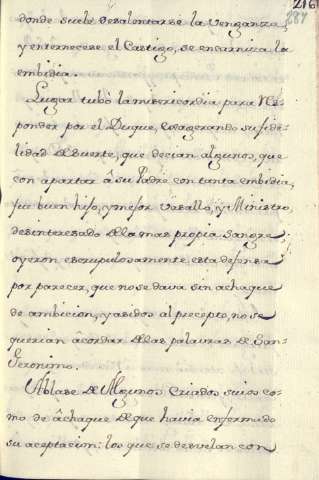 216
287
donde suele desalentarse la Venganza,
y enternecerse el Castigo, se encarniza la
embidia.
Lugar tubò la misericordia para Res-
ponder por el Duque, exagerando su fide-
lidad de suerte, que decian algunos, que
con apartar â su Padre con tanta embidia,
fue buen hijo, y mejor Vasallo, y Ministro,
desinteresado de la mas propia Sangre
oyeron escrupulosamente esta defensa
por parecer, que no se dava sin achaque
de ambicion, y asidos al precepto, no se
querian acordar de las palauras de San
Geronimo.
Ablase de Algunos Criados suios co-
mo de âchaque de que havia enfermado
su aceptacion: los que se desvelan con